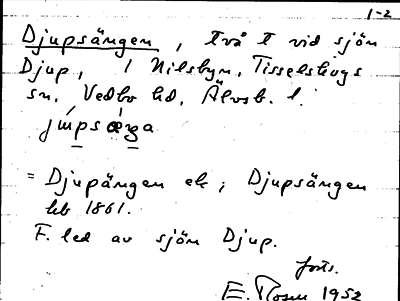 1-2
Djupsängen, två t vid sjön
Djup, i Nilsbyn, Tisselskogs
sn, Vedbo hd, Älvsb. l.
= Djupängen ek; Djupsängen
hb 1861.
F. led av sjön Djup.
forts.
E. Rosen 1952